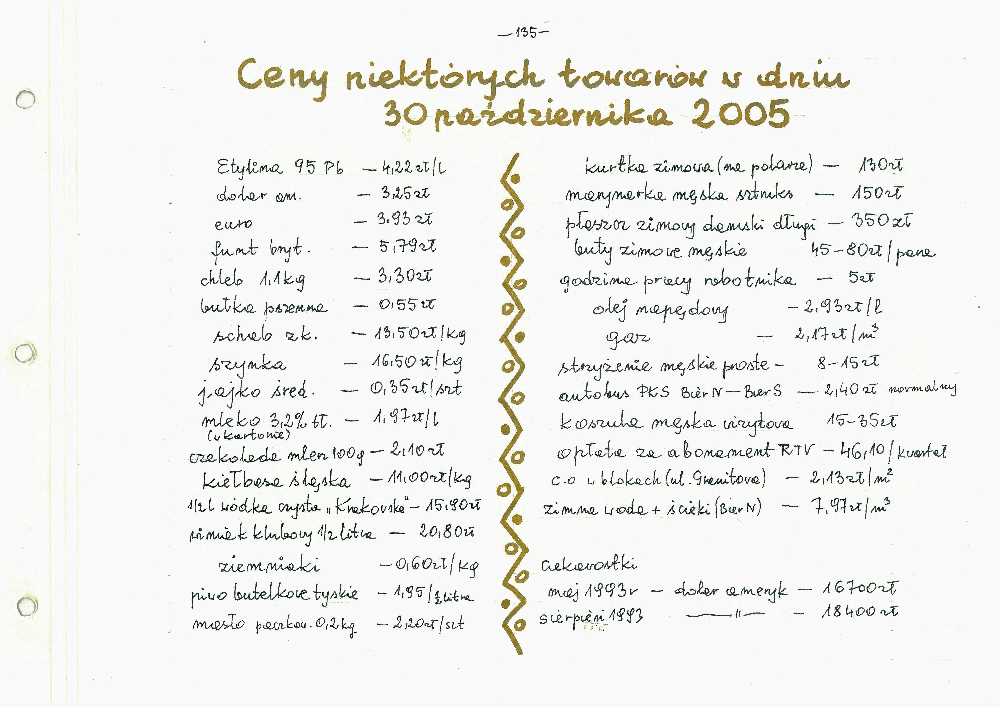 —135—
Ceny niektórych towarów w dniu
30 października 2005
Etylina 95 Pb — 4,22zł/l
dolar am. — 3,25zł
euro — 3,93 zł
funt bryt. — 5,79zł
chleb 1,1kg — 3,30zł
bułka pszenna — 0,55zł
schab z k. — 13,50zł/kg
szynka — 16,50zł/kg
jajko śred. — 0,35zł/szt
mleko 3,2% tł. — 1,97zł/l
(w kartonie)
czekolada mlecz 100g — 2,10zł
kiełbasa śląska — 11,00zł/kg
1/2 l wódka czysta „Krakowska" — 15,90zł
winiak klubowy 1/2 litra — 20,80zł
ziemniaki — 0,60zł/kg
piwo butelkowe tyskie — 1,95/½ litra
masło paczkow. 0,2kg — 2,20zł/szt
kurtka zimowa (na polarze) — 130zł
marynarka męska sztruks — 150zł
płaszcz zimowy damski długi — 350 zł
buty zimowe męskie 45-80zł/para
godzina pracy robotnika — 5zł
olej napędowy — 2,93zł/l
gaz — 2,17zł/m³
strzyżenie męskie proste — 8-15zł
autobus PKS Bier N — Bier S — 2,40 zł normalny
koszula męska wizytowa 15-35zł
opłata za abonament RTV — 46,10/kwartał
c.o w blokach (ul. Granitowa) — 2,13zł/m²
zimna woda + ścieki (Bier N) — 7,97zł/m³
Ciekawostki
maj 1993r — dolar ameryk — 16700zł
sierpień 1993 —〃— — 18400zł